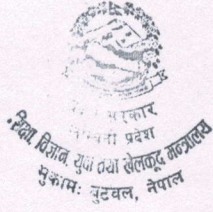 सरकार
प्रदेश
शिक्षा विज्ञान, युवा तथा खेलकूद मन्त्रालय
मुकामः बुटवल, नेपाल